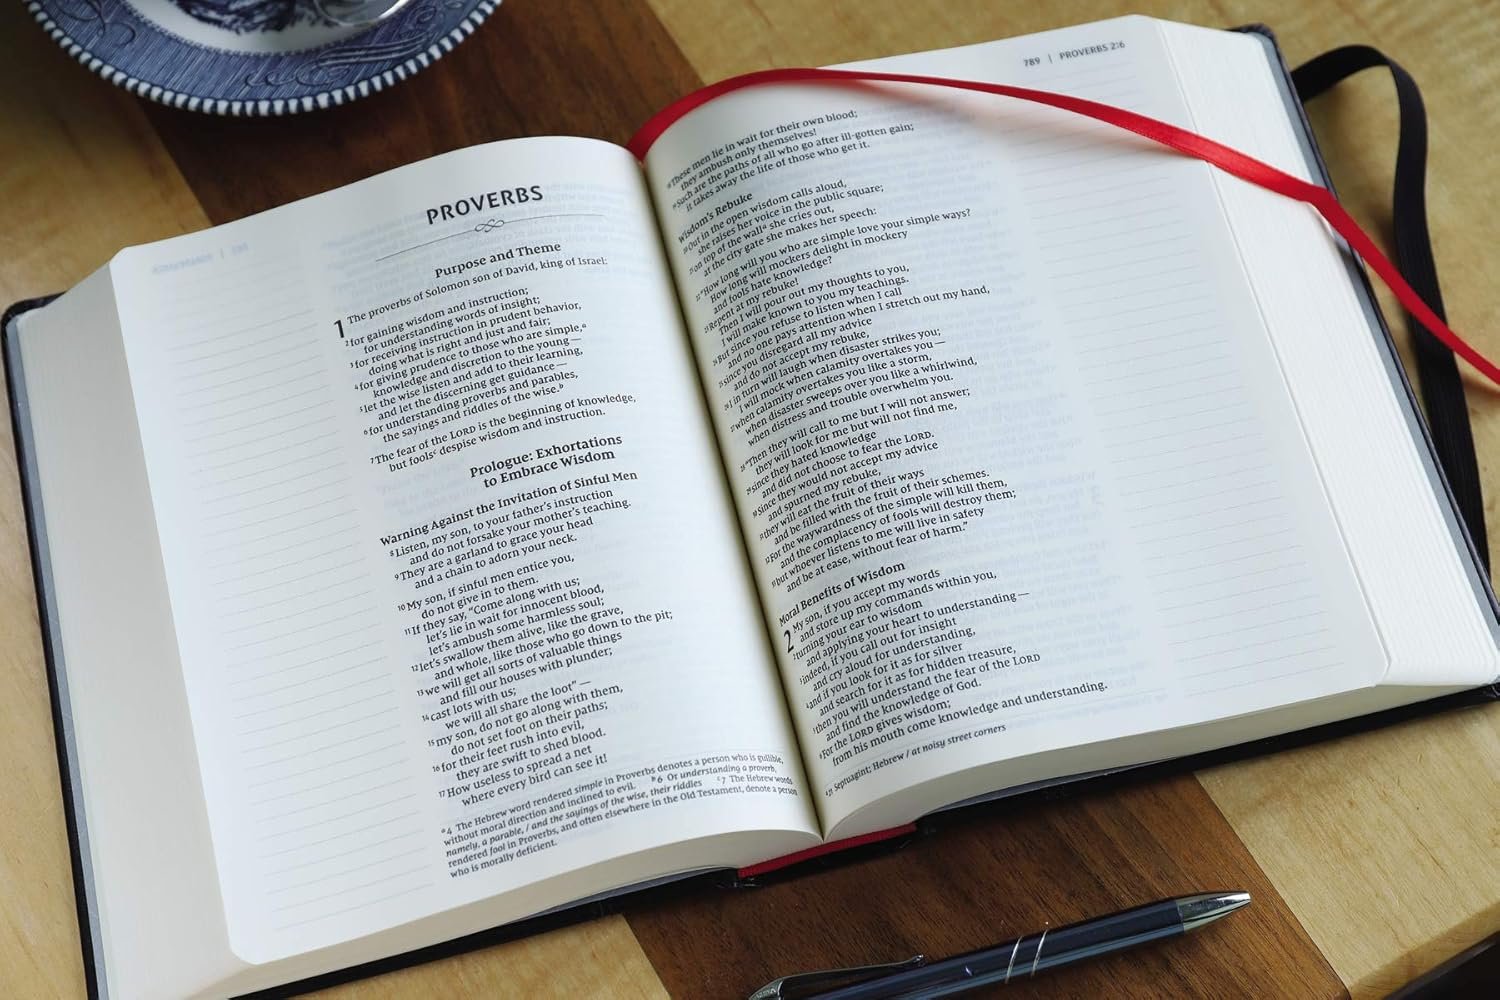 PROVERBS
Purpose and Theme
1 The proverbs of Solomon son of David, king of Israel:
2 for gaining wisdom and instruction;
for understanding words of insight;
3 for receiving instruction in prudent behavior,
doing what is right and just and fair;
4 for giving prudence to those who are simple,a
knowledge and discretion to the young—
5 let the wise listen and add to their learning,
and let the discerning get guidance—
6 for understanding proverbs and parables,
the sayings and riddles of the wise.b
7 The fear of the LORD is the beginning of knowledge,
but foolsc despise wisdom and instruction.
Prologue: Exhortations
to Embrace Wisdom
Warning Against the Invitation of Sinful Men
8 Listen, my son, to your father's instruction
and do not forsake your mother's teaching.
9 They are a garland to grace your head
and a chain to adorn your neck.
10 My son, if sinful men entice you,
do not give in to them.
11 If they say, "Come along with us;
let's lie in wait for innocent blood,
let's ambush some harmless soul;
12 let's swallow them alive, like the grave,
and whole, like those who go down to the pit;
13 we will get all sorts of valuable things
and fill our houses with plunder;
14 cast lots with us;
we will all share the loot"—
15 my son, do not go along with them,
do not set foot on their paths;
16 for their feet rush into evil,
they are swift to shed blood.
17 How useless to spread a net
where every bird can see it!
a 4 The Hebrew word rendered simple in Proverbs denotes a person who is gullible,
without moral direction and inclined to evil. b 6 Or understanding a proverb,
namely, a parable, / and the sayings of the wise, their riddles c 7 The Hebrew words
rendered fool in Proverbs, and often elsewhere in the Old Testament, denote a person
who is morally deficient.
789 | PROVERBS 2:6
18 These men lie in wait for their own blood;
they ambush only themselves!
19 Such are the paths of all who go after ill-gotten gain;
it takes away the life of those who get it.
Wisdom's Rebuke
20 Out in the open wisdom calls aloud,
she raises her voice in the public square;
21 on top of the walla she cries out,
at the city gate she makes her speech:
22 "How long will you who are simple love your simple ways?
How long will mockers delight in mockery
and fools hate knowledge?
23 Repent at my rebuke!
Then I will pour out my thoughts to you,
I will make known to you my teachings.
24 But since you refuse to listen when I call
and no one pays attention when I stretch out my hand,
25 since you disregard all my advice
and do not accept my rebuke,
26 I in turn will laugh when disaster strikes you;
I will mock when calamity overtakes you—
27 when calamity overtakes you like a storm,
when disaster sweeps over you like a whirlwind,
when distress and trouble overwhelm you.
28 "Then they will call to me but I will not answer;
they will look for me but will not find me,
29 since they hated knowledge
and did not choose to fear the LORD.
30 Since they would not accept my advice
and spurned my rebuke,
31 they will eat the fruit of their ways
and be filled with the fruit of their schemes.
32 For the waywardness of the simple will kill them,
and the complacency of fools will destroy them;
33 but whoever listens to me will live in safety
and be at ease, without fear of harm."
Moral Benefits of Wisdom
2 My son, if you accept my words
and store up my commands within you,
2 turning your ear to wisdom
and applying your heart to understanding—
3 indeed, if you call out for insight
and cry aloud for understanding,
4 and if you look for it as for silver
and search for it as for hidden treasure,
5 then you will understand the fear of the LORD
and find the knowledge of God.
6 For the LORD gives wisdom;
from his mouth come knowledge and understanding.
a 21 Septuagint; Hebrew / at noisy street corners